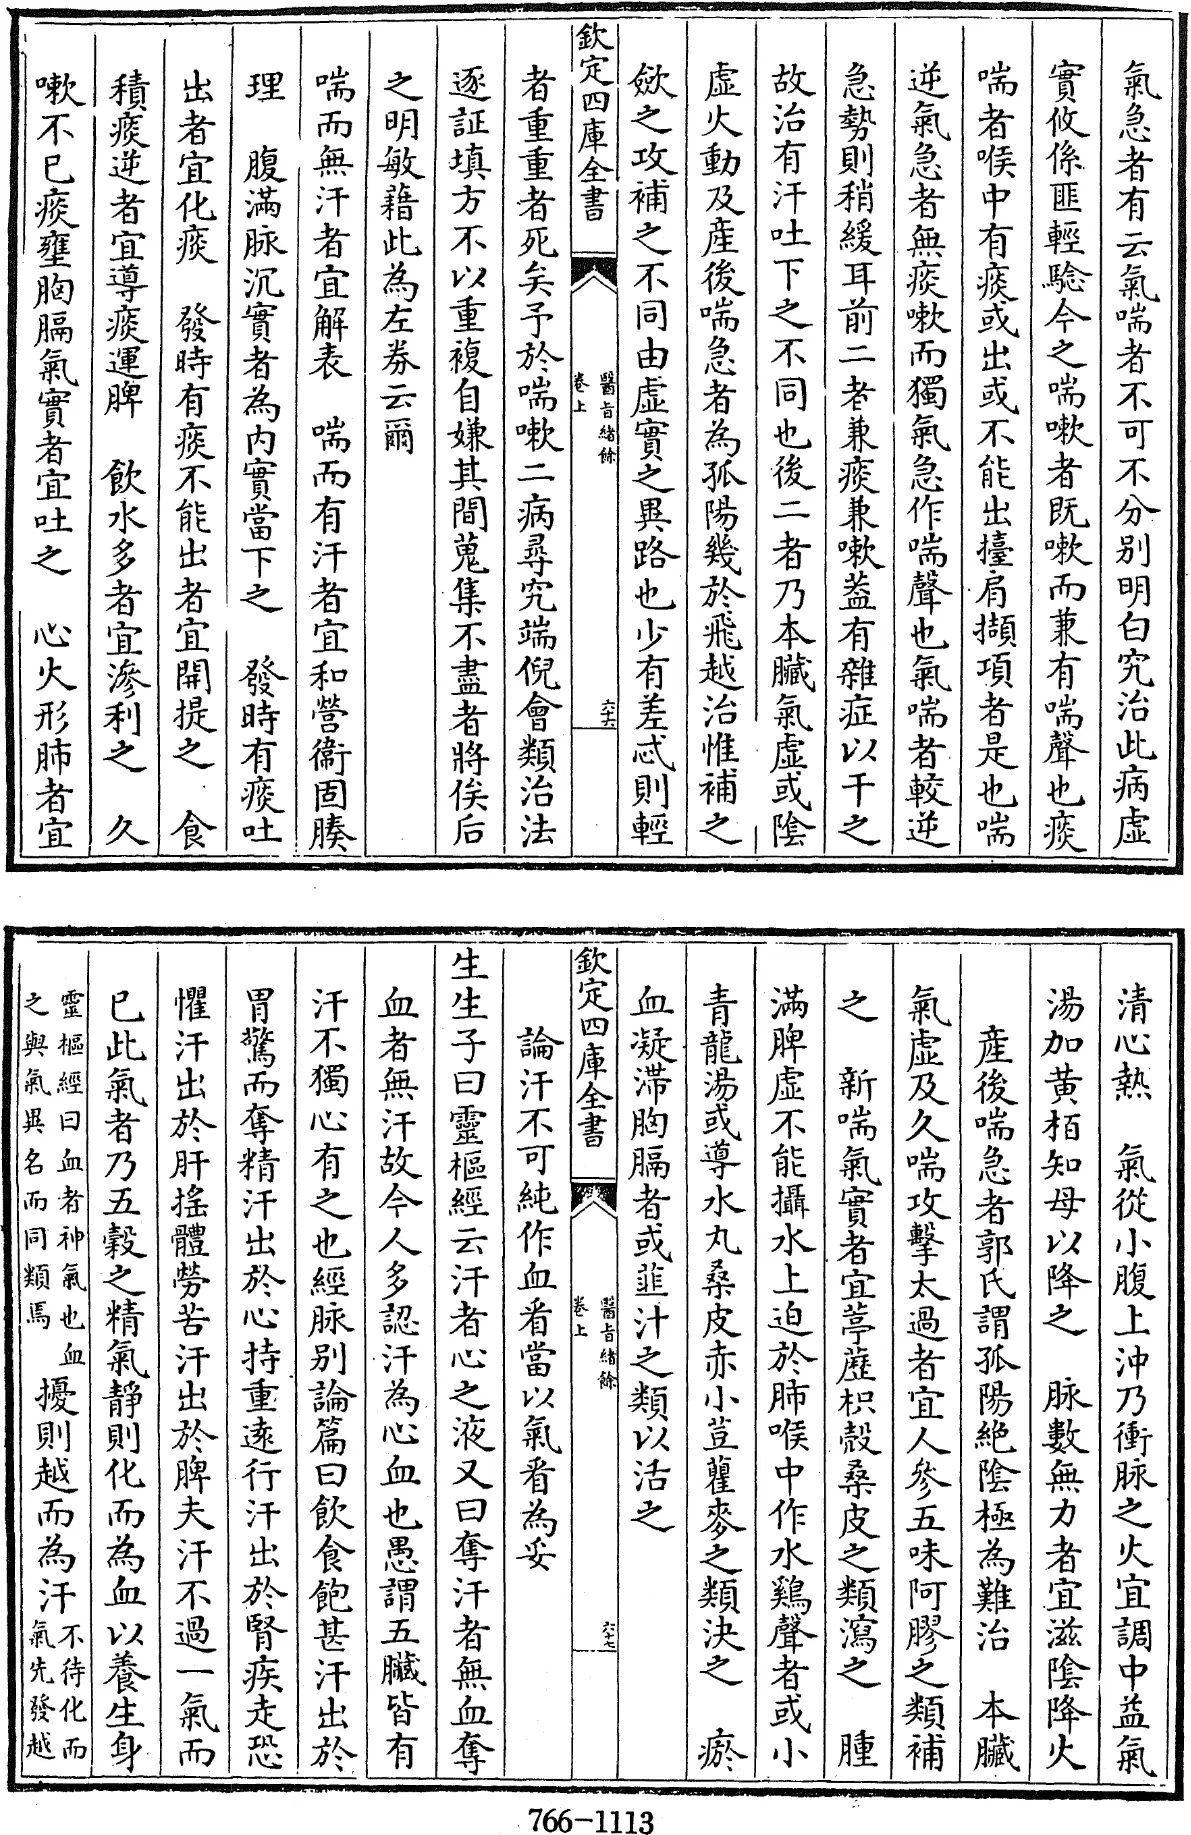 氣急者有云氣喘者不可不分别明白究治此病虛
實攸係匪輕驗今之喘嗽者既嗽而兼有喘聲也痰
喘者喉中有痰或出或不能出擡肩擷項者是也喘
逆氣急者無痰嗽而獨氣急作喘聲也氣喘者較逆
急勢則稍緩耳前二者兼痰兼嗽葢有雜症以干之
故治有汗吐下之不同也後二者乃本臟氣虛或陰
虛火動及産後喘急者為孤陽幾於飛越治惟補之
斂之攻補之不同由虛實之異路也少有差忒則輕
欽定四庫全書
醫旨緒餘
卷上
六十六
者重重者死矣予於喘嗽二病尋究端倪會類治法
逐証填方不以重複自嫌其間蒐集不盡者將俟后
之明敏藉此為左券云爾
喘而無汗者宜解表 喘而有汗者宜和營衛固腠
理 腹滿脉沉實者為内實當下之 發時有痰吐
出者宜化痰 發時有痰不能出者宜開提之 食
積痰逆者宜導痰運脾 飲水多者宜滲利之 久
嗽不已痰壅胸膈氣實者宜吐之 心火形肺者宜
清心熱 氣從小腹上沖乃衝脉之火宜調中益氣
湯加黄栢知母以降之 脉數無力者宜滋陰降火
産後喘急者郭氏謂孤陽絶陰極為難治 本臟
氣虛及久喘攻擊太過者宜人參五味阿膠之類補
之 新喘氣實者宜葶藶枳殼桑皮之類瀉之 腫
滿脾虛不能攝水上迫於肺喉中作水鷄聲者或小
青龍湯或導水丸桑皮赤小荳瞿麥之類決之 瘀
血凝滯胸膈者或韮汁之類以活之
欽定四庫全書
醫旨緒餘
卷上
六十七
論汗不可純作血看當以氣看為妥
生生子曰靈樞經云汗者心之液又曰奪汗者無血奪
血者無汗故今人多認汗為心血也愚謂五臟皆有
汗不獨心有之也經脉别論篇曰飲食飽甚汗出於
胃驚而奪精汗出於心持重遠行汗出於腎疾走恐
懼汗出於肝揺體勞苦汗出於脾夫汗不過一氣而
已此氣者乃五穀之精氣靜則化而為血以養生身
靈樞經曰血者神氣也血之與氣異名而同類焉 擾則越而為汗 不待化而氣先發越
766-1113